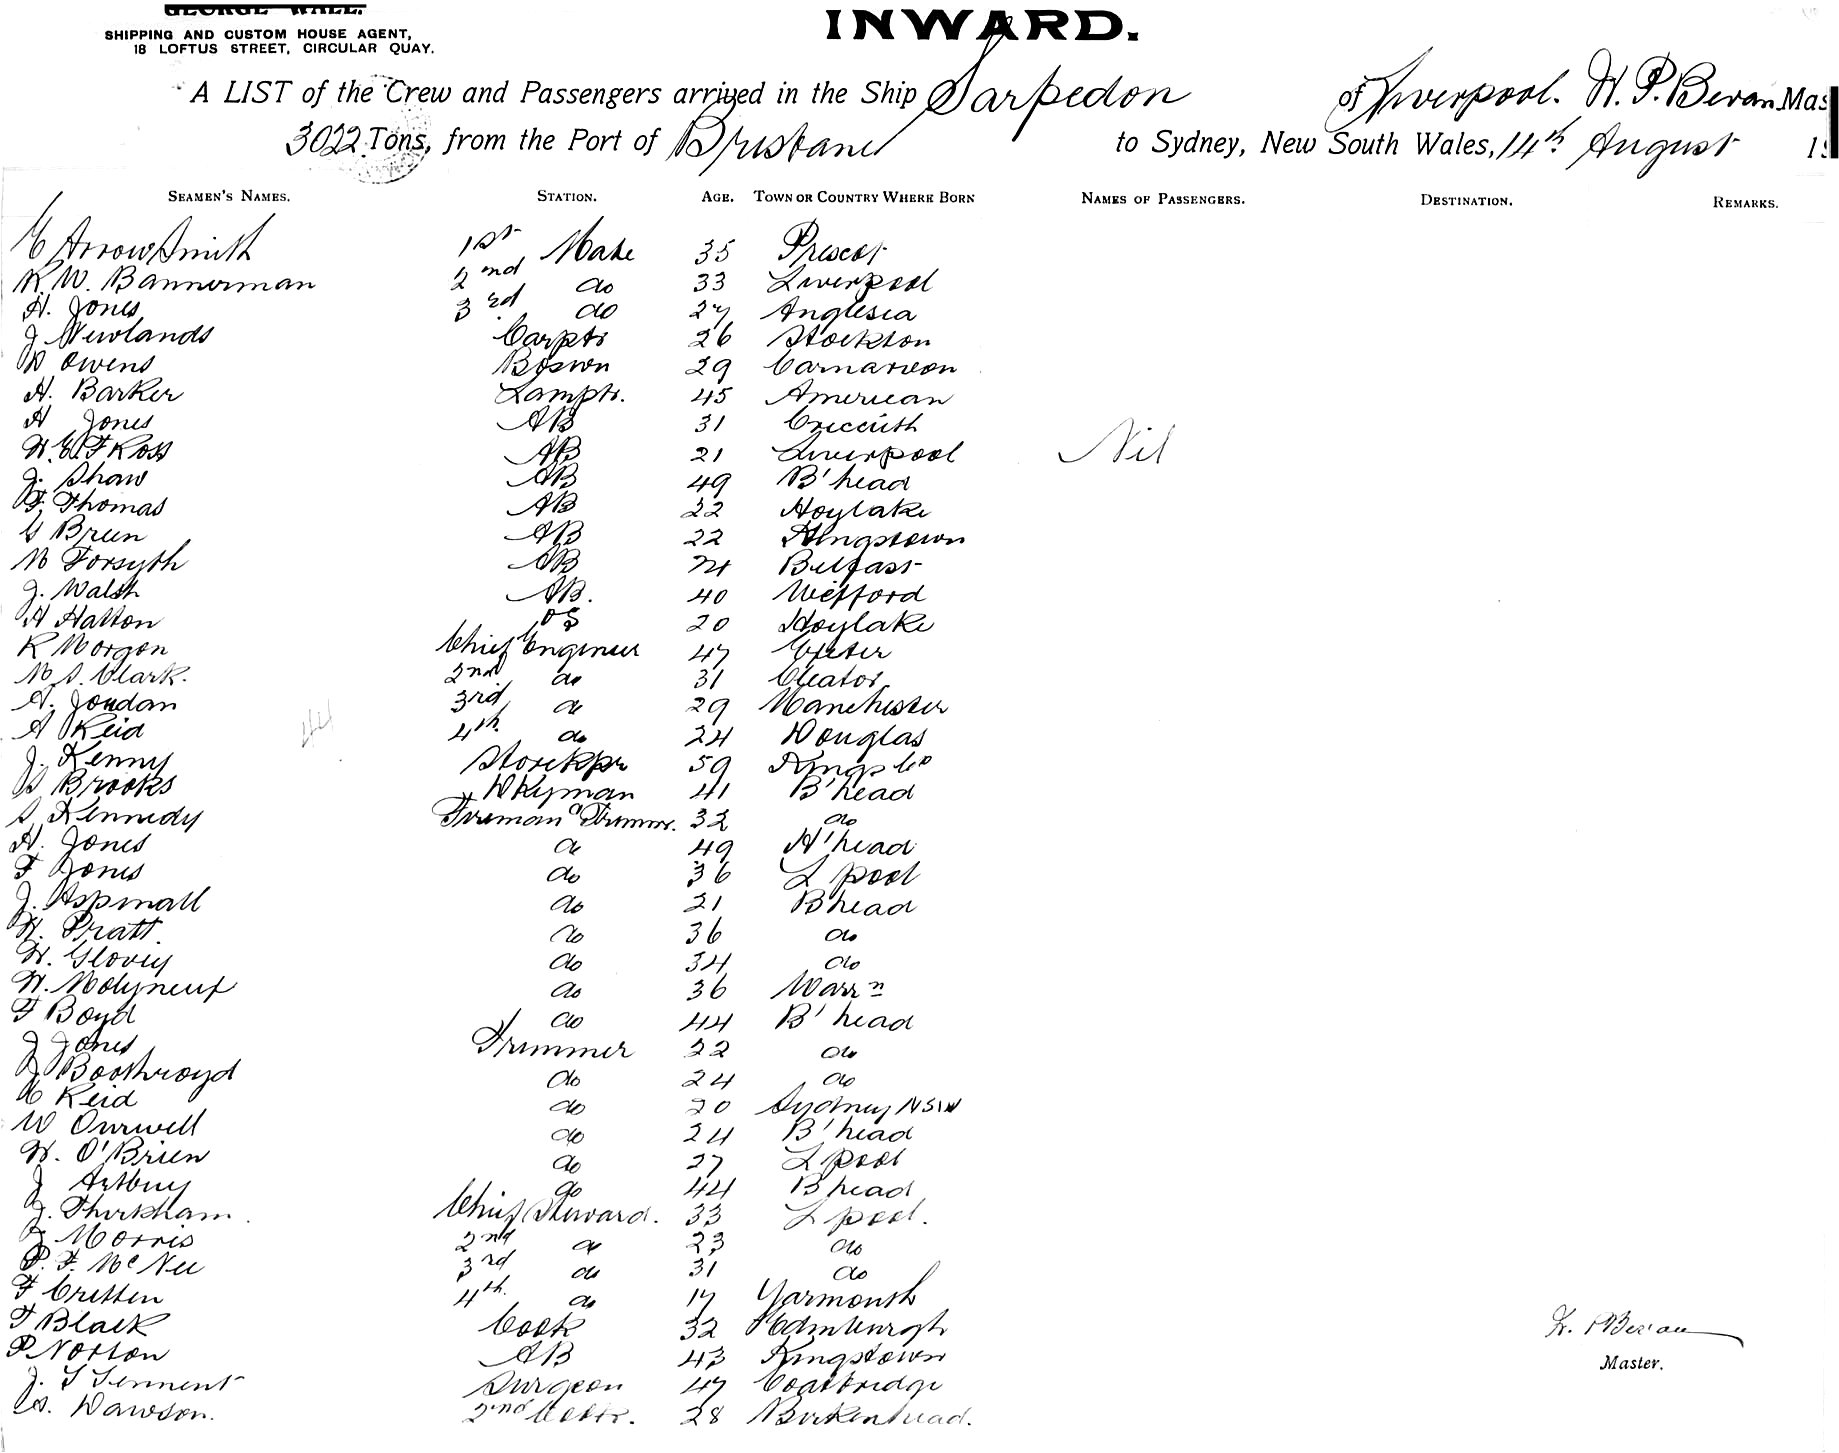 GEORGE WALL.
SHIPPING AND CUSTOM HOUSE AGENT,
18 LOFTUS STREET, CIRCULAR QUAY.
INWARD.
A LIST of the Crew and Passengers arrived in the Ship Sarpedon of Liverpool. H. P. Bevan Mas
3022 Tons, from the Port of Brisbane to Sydney, New South Wales, 14th August 1
SEAMEN'S NAMES. STATION. AGE. TOWN OR COUNTRY WHERE BORN NAMES OF PASSENGERS. DESTINATION. REMARKS.
C Arrowsmith 1st Mate 35 Prescot
R. W. Bannerman 2nd do 33 Liverpool
H. Jones 3rd do 27 Anglesia
J Newlands Carptr 26 Stockton
Owens Boswn 29 Carnarvon
H. Barker Lamptr. 45 American
H Jones AB 31 Criccith
W. E. F Ross AB 21 Liverpool
Nil
J. Shaw AB 49 B'head
F. Thomas AB 22 Hoylake
G Breen AB 22 Kingstown
M Forsyth AB 21 Belfast
J. Walsh AB. 40 Wexford
H Hatton OS 20 Hoylake
R Morgan Chief Engineer 47 Exeter
M S. Clark. 2nd do 31 Cleator
A. Joudan 3rd do 29 Manchester
A Reid 4th do 24 Douglas
Nil
J. Kenny Storekpr 59 Kings Co
Brooks Dkyman 41 B'head
S Kennedy Fireman & Trimmr. 32 do
H. Jones do 49 H'head
F Jones do 36 L pool
J. Aspinall do 21 B head
W. Pratt. do 36 do
W. Glovey do 34 do
W. Molyneux do 36 Warrn
F Boyd do 44 B'head
J Jones Trimmer 22 do
J Boothroyd do 24 do
C Reid do 20 Sydney NSW
W Ourwell do 24 B'head
W. O'Brien do 27 L pool
J Astbury do 44 B head
J. Thirkham. Chief Steward. 33 L pool.
J Morris 2nd do 23 do
P. F. McNee 3rd do 31 do
F Critten 4th do 17 Yarmouth
F Black Cook 32 Edinburgh
P Norton AB 43 Kingstown
J. S Tennent Surgeon 47 Coatbridge
G. Dawson. 2nd 28 Birkenhead.
H. P Bevan
Master.